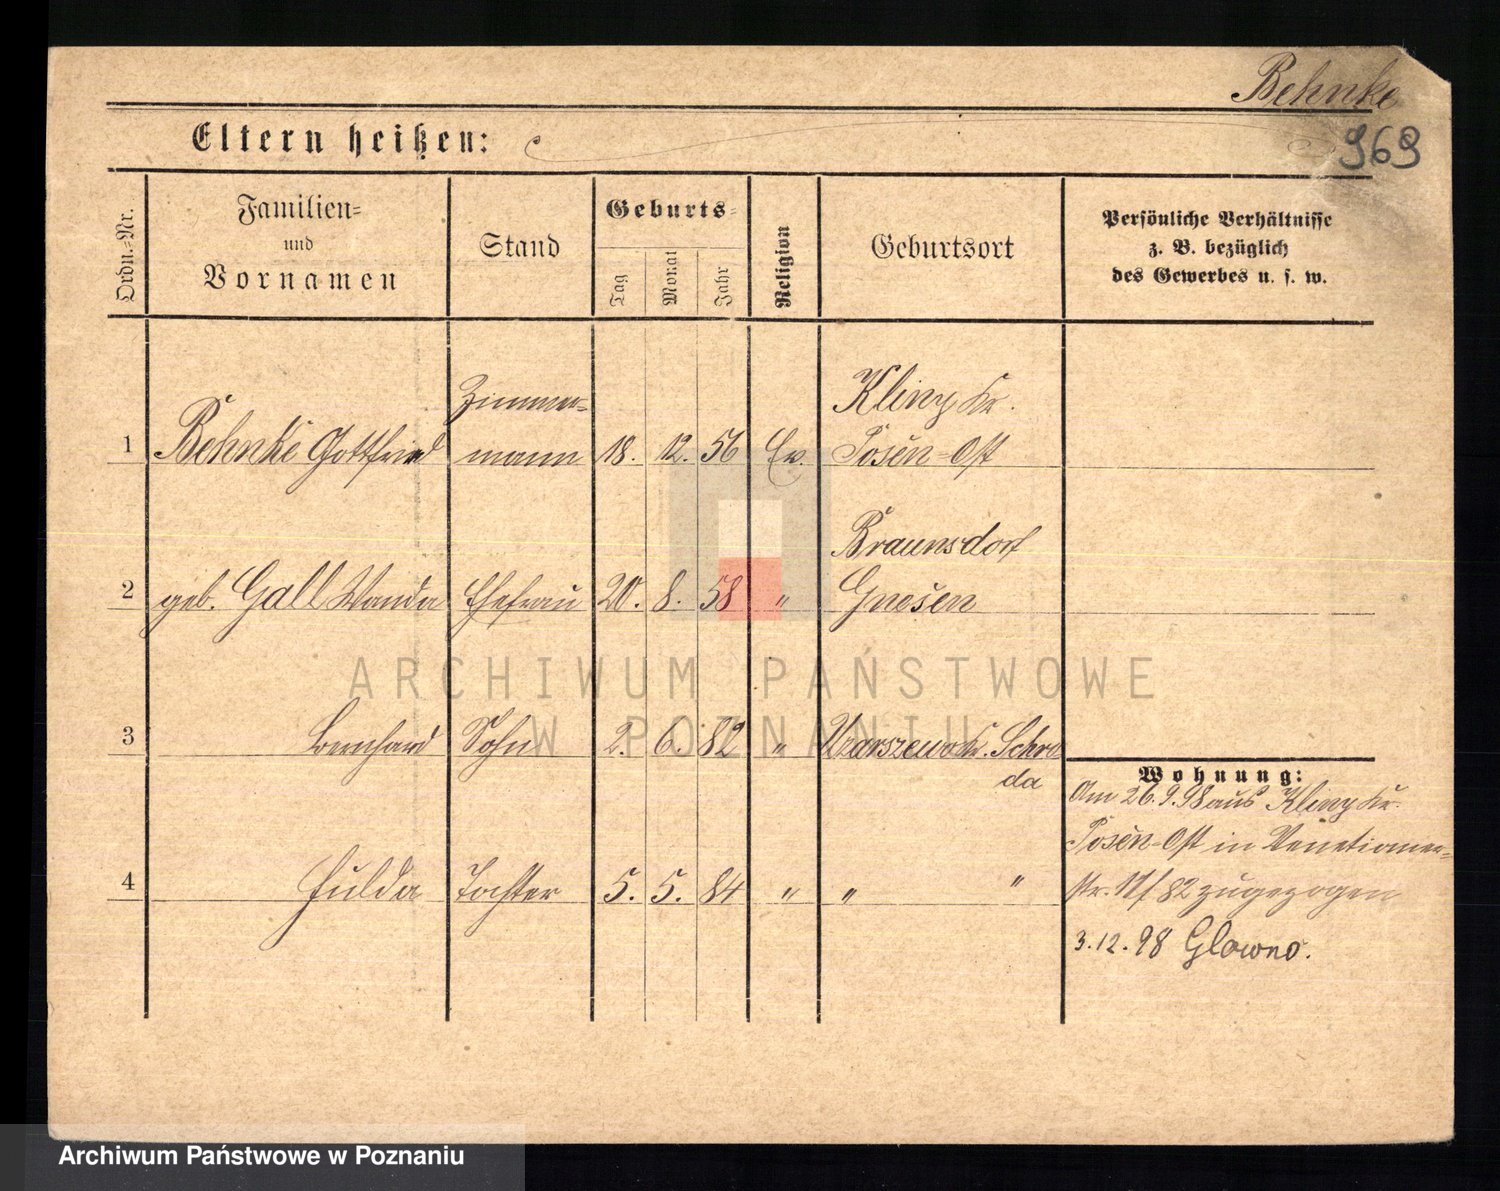 Behnke
969
Eltern heißen:
Ordn.-Nr.
Familien-
und
Vornamen
Stand
Geburts-
Tag
Monat
Jahr
Religion
Geburtsort
Persönliche Verhältnisse
z. B. bezüglich
des Gewerbes u. s. w.
Zimmer-
Kliny Kr.
1 Behnke Gottfried mann 18. 12. 56 Ev. Posen-Ost
Braunsdorf
2 geb. Gall Wanda Ehefrau 20. 8. 58 " Gnesen
3 Bernhard Sohn 2. 6. 82 " Kr. Schro
da
4 Hulda Tochter 5. 5. 84 " " "
Wohnung:
Am 26.9.98 aus Kliny Kr.
Posen-Ost in Venetianer-
str. 11/82 zugezogen
3.12.98 Glowno.
ARCHIWUM PAŃSTWOWE
W POZNANIU
Archiwum Państwowe w Poznaniu